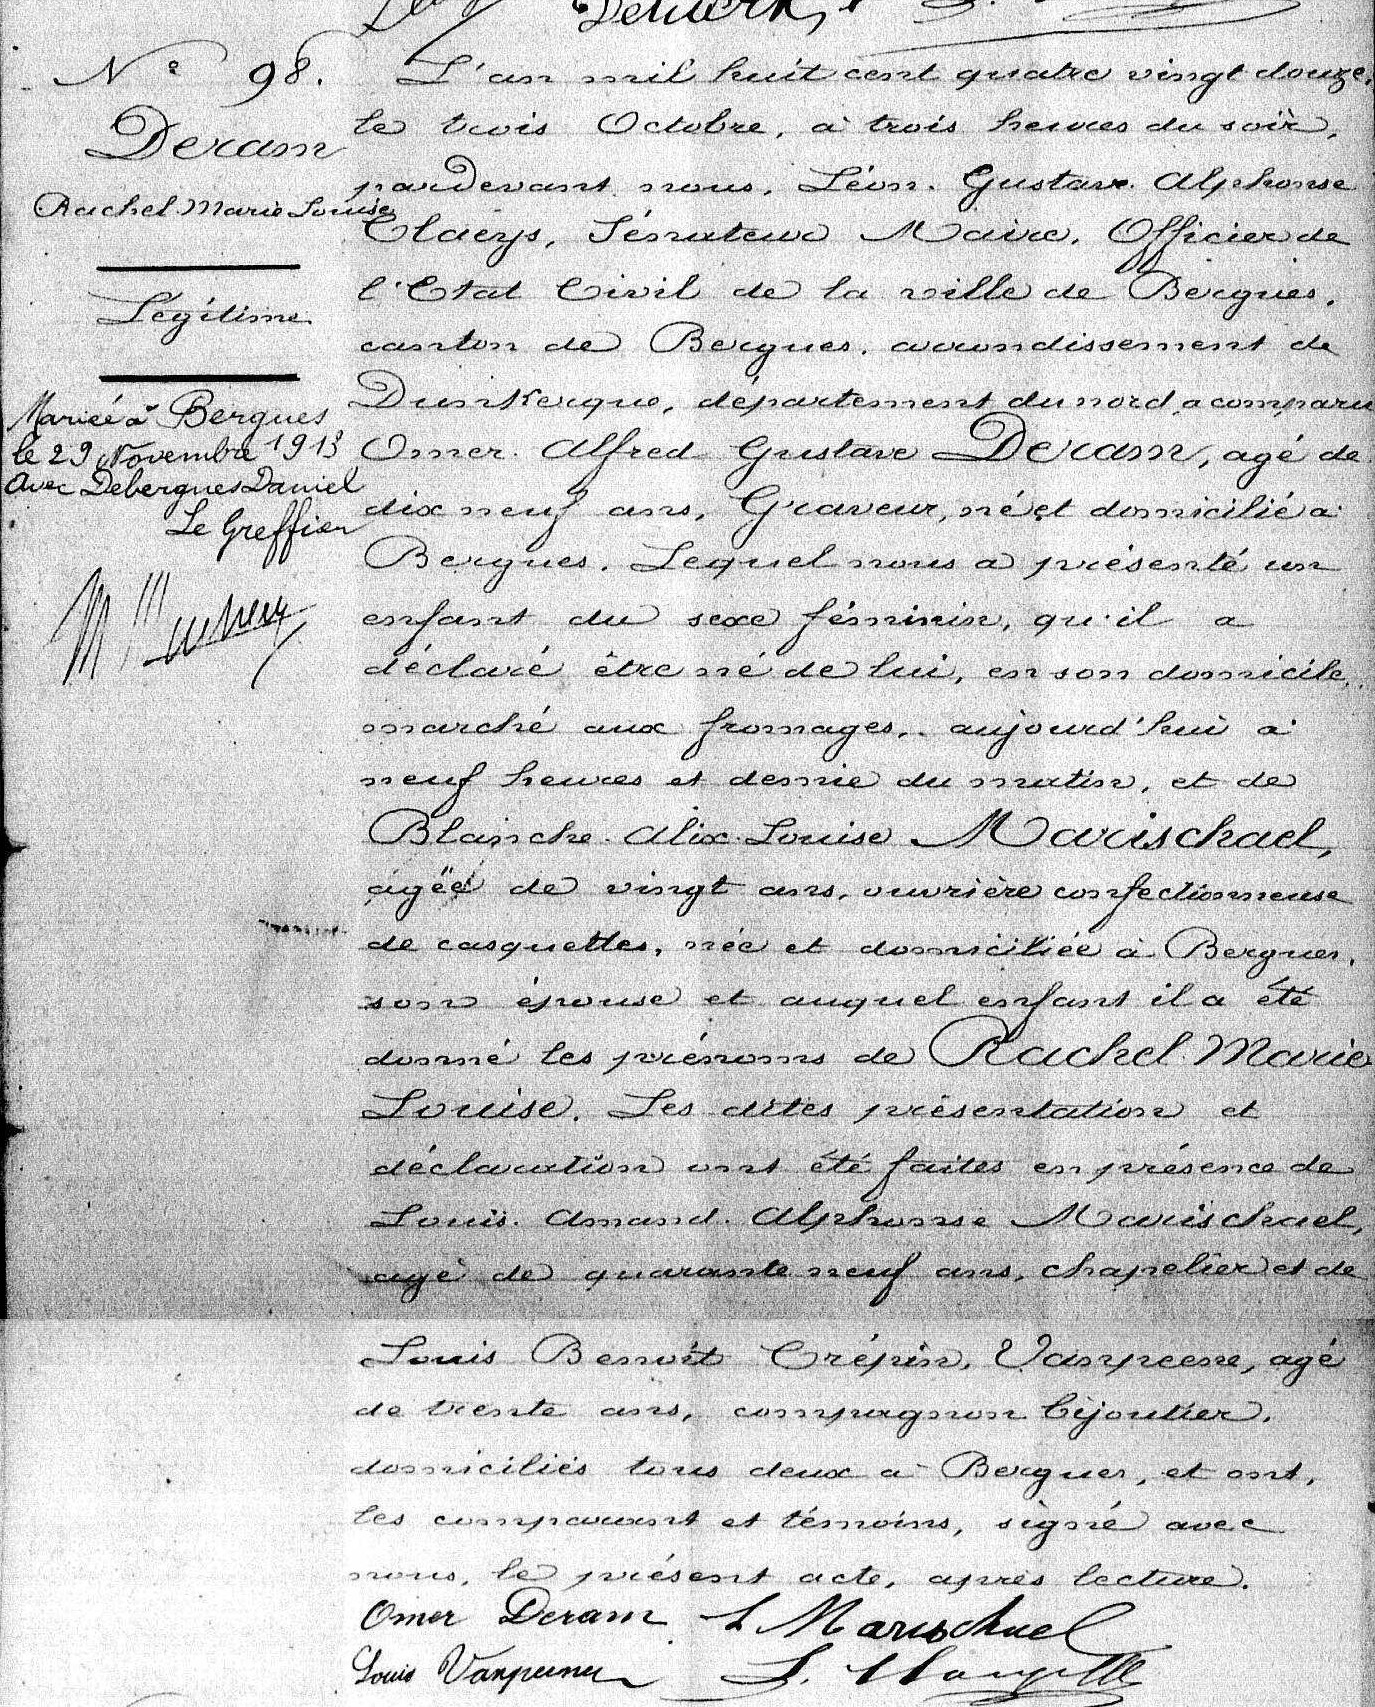 N° 98.
Deram
Rachel Marie Louise
Légitime
Mariée à Bergues
le 29 Novembre 1913
avec Debergues Daniel
Le Greffier
L'an mil huit cent quatre vingt douze,
le trois Octobre, à trois heures du soir,
pardevant nous, Léon. Gustave. Alphonse
Claeys, Sénateur Maire, Officier de
l'Etat Civil de la ville de Bergues,
canton de Bergues, arrondissement de
Dunkerque, département du nord, a comparu
Omer. Alfred Gustave Deram, agé de
dix neuf ans, Graveur, né et domicilié à
Bergues. Lequel nous a présenté un
enfant du sexe féminin, qu'il a
déclaré être né de lui, en son domicile,
marché aux fromages, aujourd'hui à
neuf heures et demie du matin, et de
Blanche. Alix. Louise Marischael,
agée de vingt ans, ouvrière confectionneuse
de casquettes, née et domiciliée à Bergues,
son épouse et auquel enfant il a été
donné les prénoms de Rachel Marie
Louise. Les dites présentation et
déclaration ont été faites en présence de
Louis. Amand. Alphonse Marischael,
agé de quarante neuf ans, chapelier et de
Louis Benoît Crépin, Vanpeene, agé
de trente ans, compagnon bijoutier,
domiciliés tous deux à Bergues, et ont,
les comparant et témoins, signé avec
nous, le présent acte, après lecture.
Omer Deram L Marischael
Louis Vanpeene